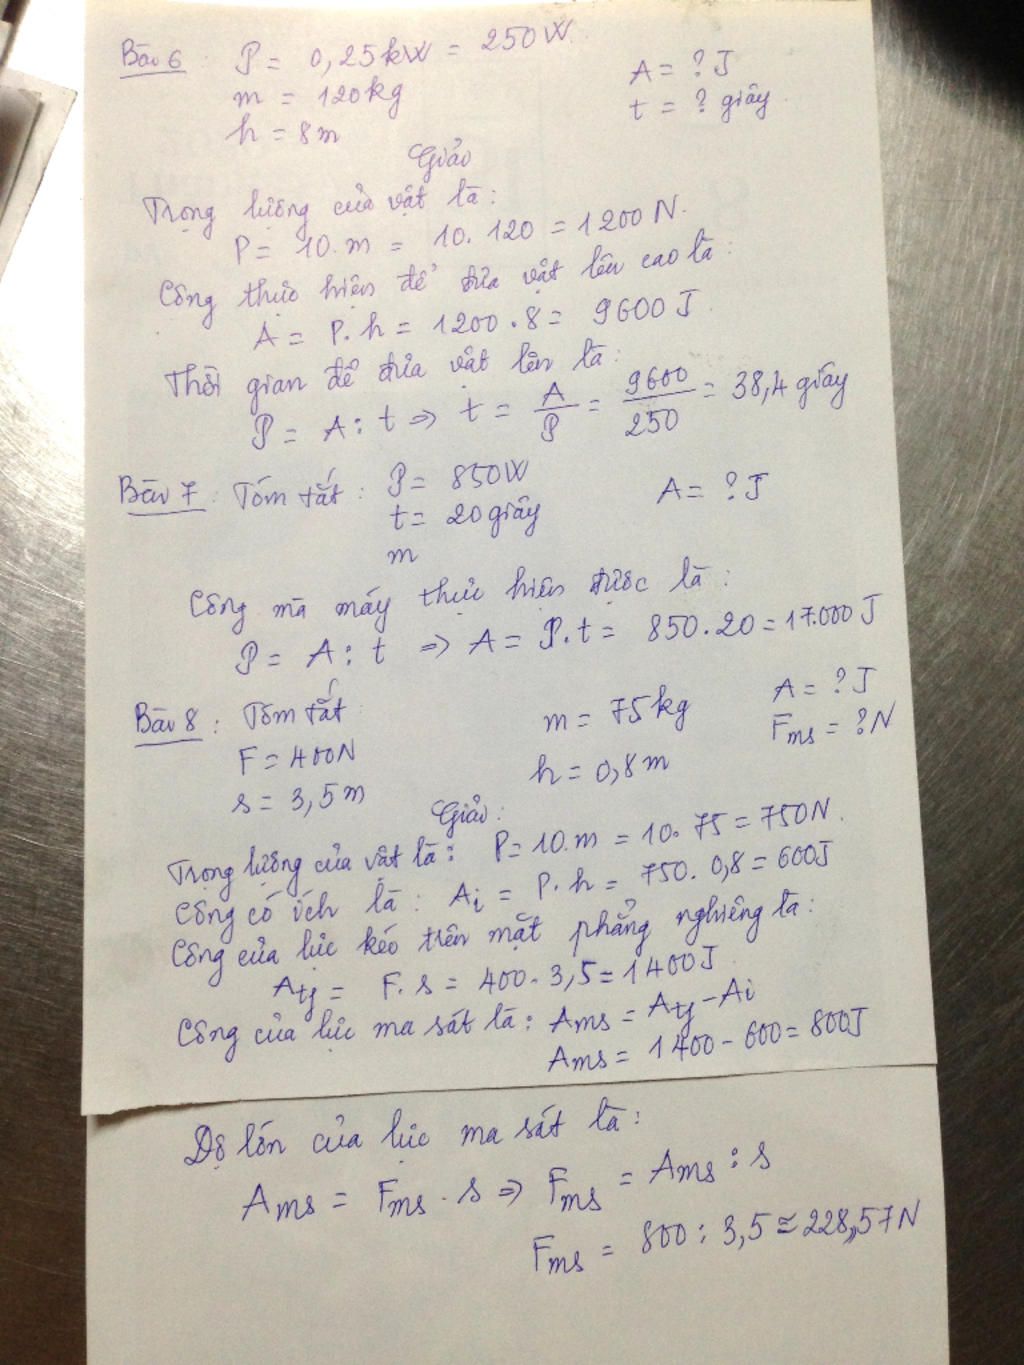 Bài 6 : P = 0,25kW = 250W
m = 120kg
h = 8m
A = ? J
t = ? giây
Giải
Trọng lượng của vật là :
P = 10.m = 10.120 = 1200N.
Công thực hiện để đưa vật lên cao là :
A = P.h = 1200.8 = 9600J
Thời gian để đưa vật lên là :
P = A : t => t = A/P = 9600/250 = 38,4 giây
Bài 7 : Tóm tắt : P = 850W
A = ? J
t = 20 giây
m
Công mà máy thực hiện được là :
P = A : t => A = P.t = 850.20 = 17.000J
Bài 8 : Tóm tắt
F = 400N
s = 3,5m
m = 75kg
h = 0,8m
A = ? J
Fms = ? N
Giải :
Trọng lượng của vật là : P = 10.m = 10.75 = 750N.
Công có ích là : Ai = P.h = 750.0,8 = 600J
Công của lực kéo trên mặt phẳng nghiêng là :
Atp = F.s = 400.3,5 = 1400J
Công của lực ma sát là : Ams = Atp - Ai
Ams = 1400 - 600 = 800J
Độ lớn của lực ma sát là :
Ams = Fms.s => Fms = Ams : s
Fms = 800 : 3,5 ≈ 228,57N